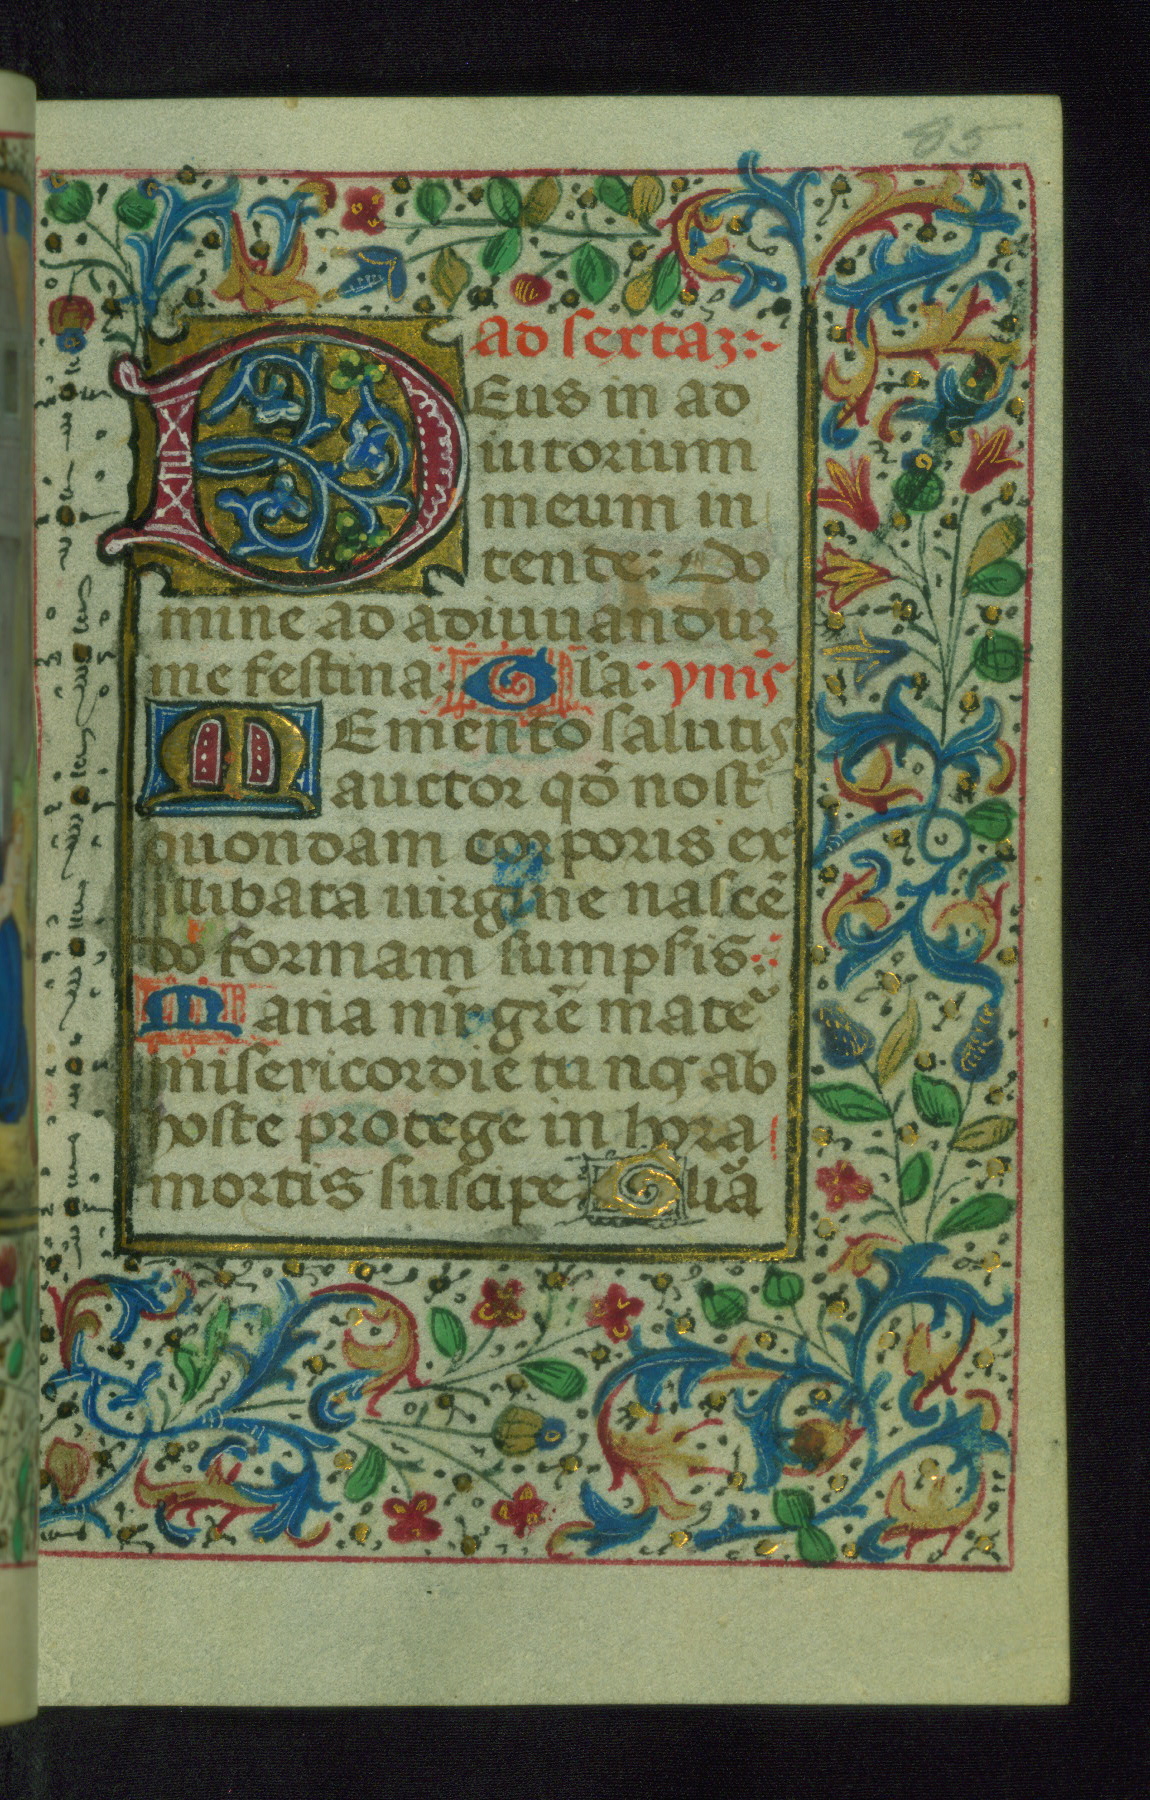 85
ad sextaꝫ:~
DEus in ad
iutorium
meum in
tende: Do
mine ad adiuuanduꝫ
me festina: Gl̄a: ymꝰ
MEmento salutis
auctor qd̄ nostͥ
quondam corporis ex
illibata uirgine nascē
do formam sumpsis:
Maria mr̄ gr̄e mater
misericordie tu nos ab
hoste protege in hora
mortis suscipe Gliã